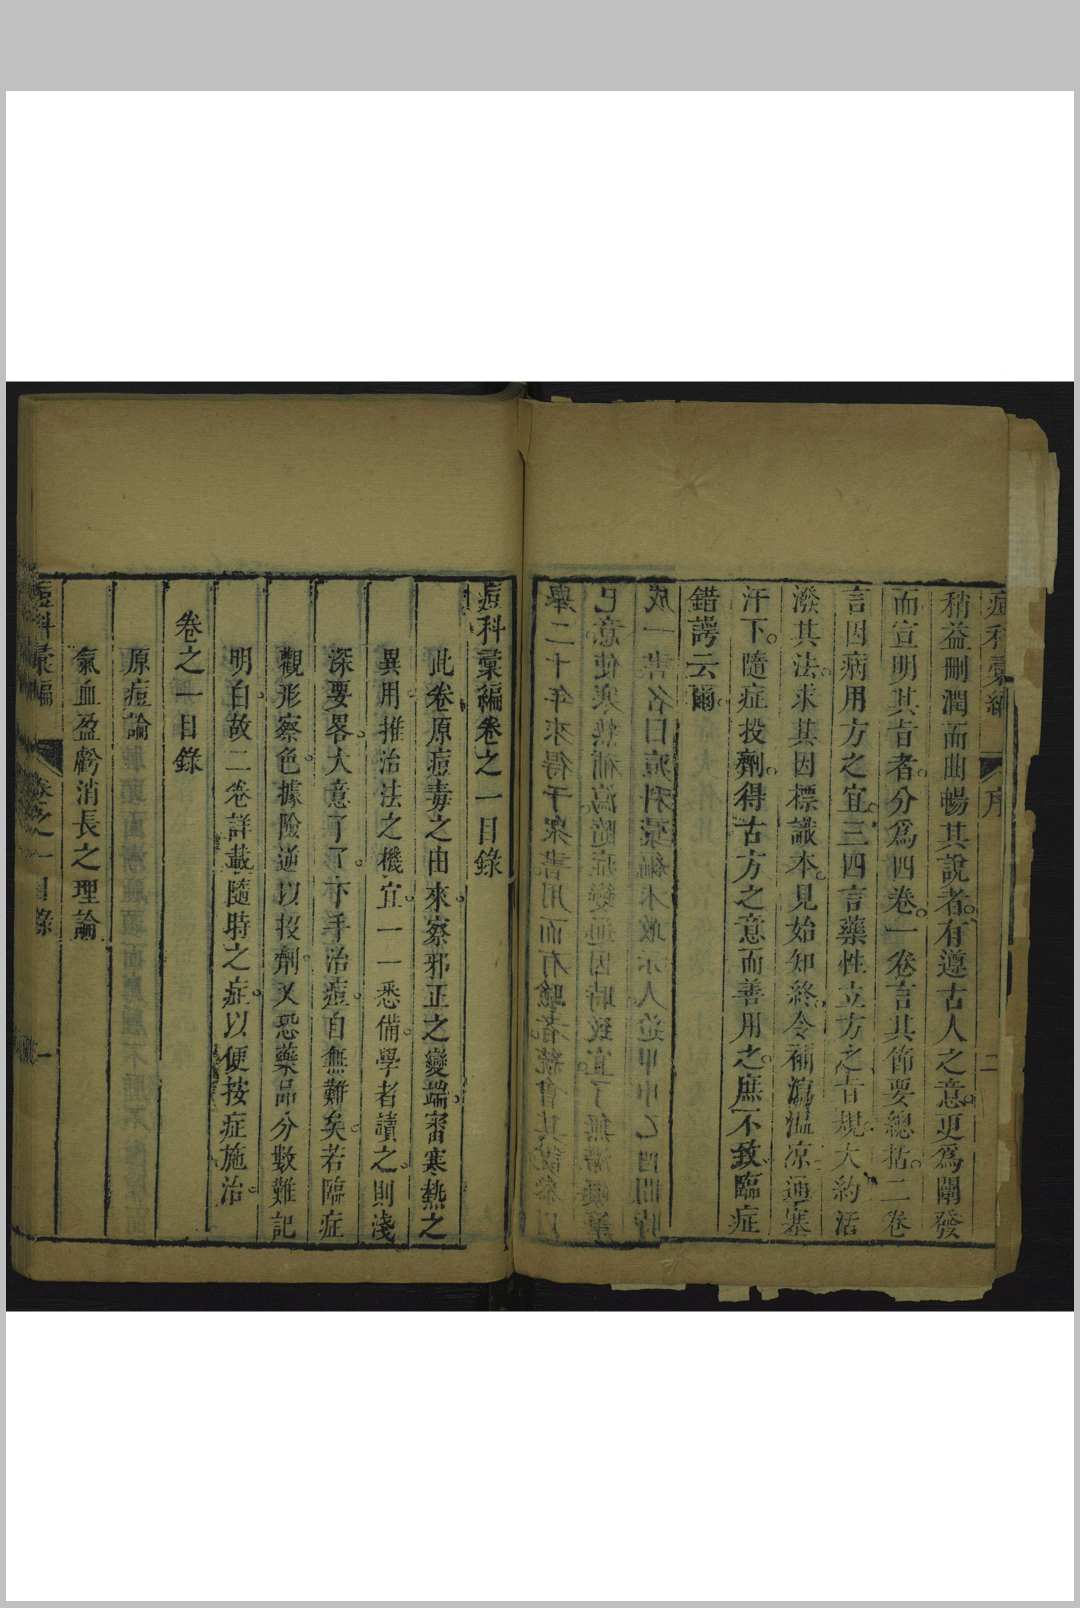 痘科彙編
序
二
稍益刪潤而曲暢其說者有遵古人之意更為闡發
而宣明其旨者分爲四卷一卷言其節要總括二卷
言因病用方之宜三四言藥性立方之旨規大約活
潑其法求其因標識本見始知終令補瀉溫凉通塞
汗下隨症投劑得古方之意而善用之庶不致臨症
錯謬云爾
痘科彙編卷之一目錄
此卷原痘毒之由來察邪正之變端審寒熱之
異用推治法之機宜一一悉備學者讀之則淺
深要畧大意了了于手治痘自無難矣若臨症
觀形察色據險逆以投劑又恐藥品分數難記
明白故二卷詳載隨時之症以便按症施治
卷之一目錄
原痘論
氣血盈虧消長之理論
痘科彙編
卷之一目錄
一